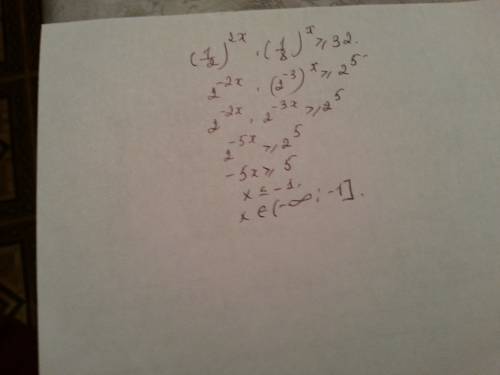 (1/2)^2x · (1/8)^x ⩾ 32.
2^-2x · (2^-3)^x ⩾ 2^5
2^-2x · 2^-3x ⩾ 2^5
2^-5x ⩾ 2^5
-5x ⩾ 5
x ≤ -1.
x ∈ (-∞; -1].